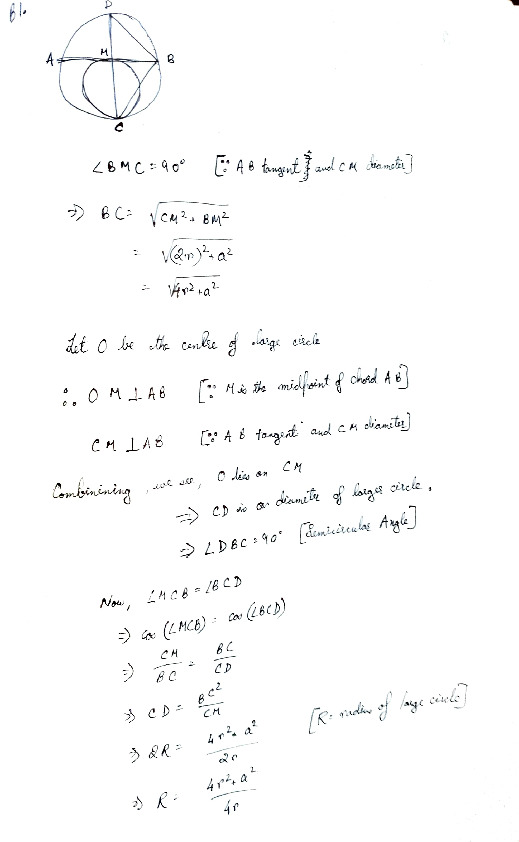 B1.
D
A M B
C
∠BMC = 90° [∵ AB tangent and CM diameter]
⇒ BC = √CM² + BM²
= √(2r)² + a²
= √4r² + a²
Let O be the centre of large circle
∴ OM ⊥ AB [∵ M is the midpoint of chord AB]
CM ⊥ AB [∵ AB tangent and CM diameter]
Combinining, we see, O lies on CM
⇒ CD is a diametre of larger circle.
⇒ ∠DBC = 90° [Semicircular Angle]
Now, ∠MCB = ∠BCD
⇒ cos (∠MCB) = cos (∠BCD)
⇒ CM/BC = BC/CD
⇒ CD = BC²/CM
⇒ 2R = 4r² + a²/2r [R = radius of large circle]
⇒ R = 4r² + a²/4r